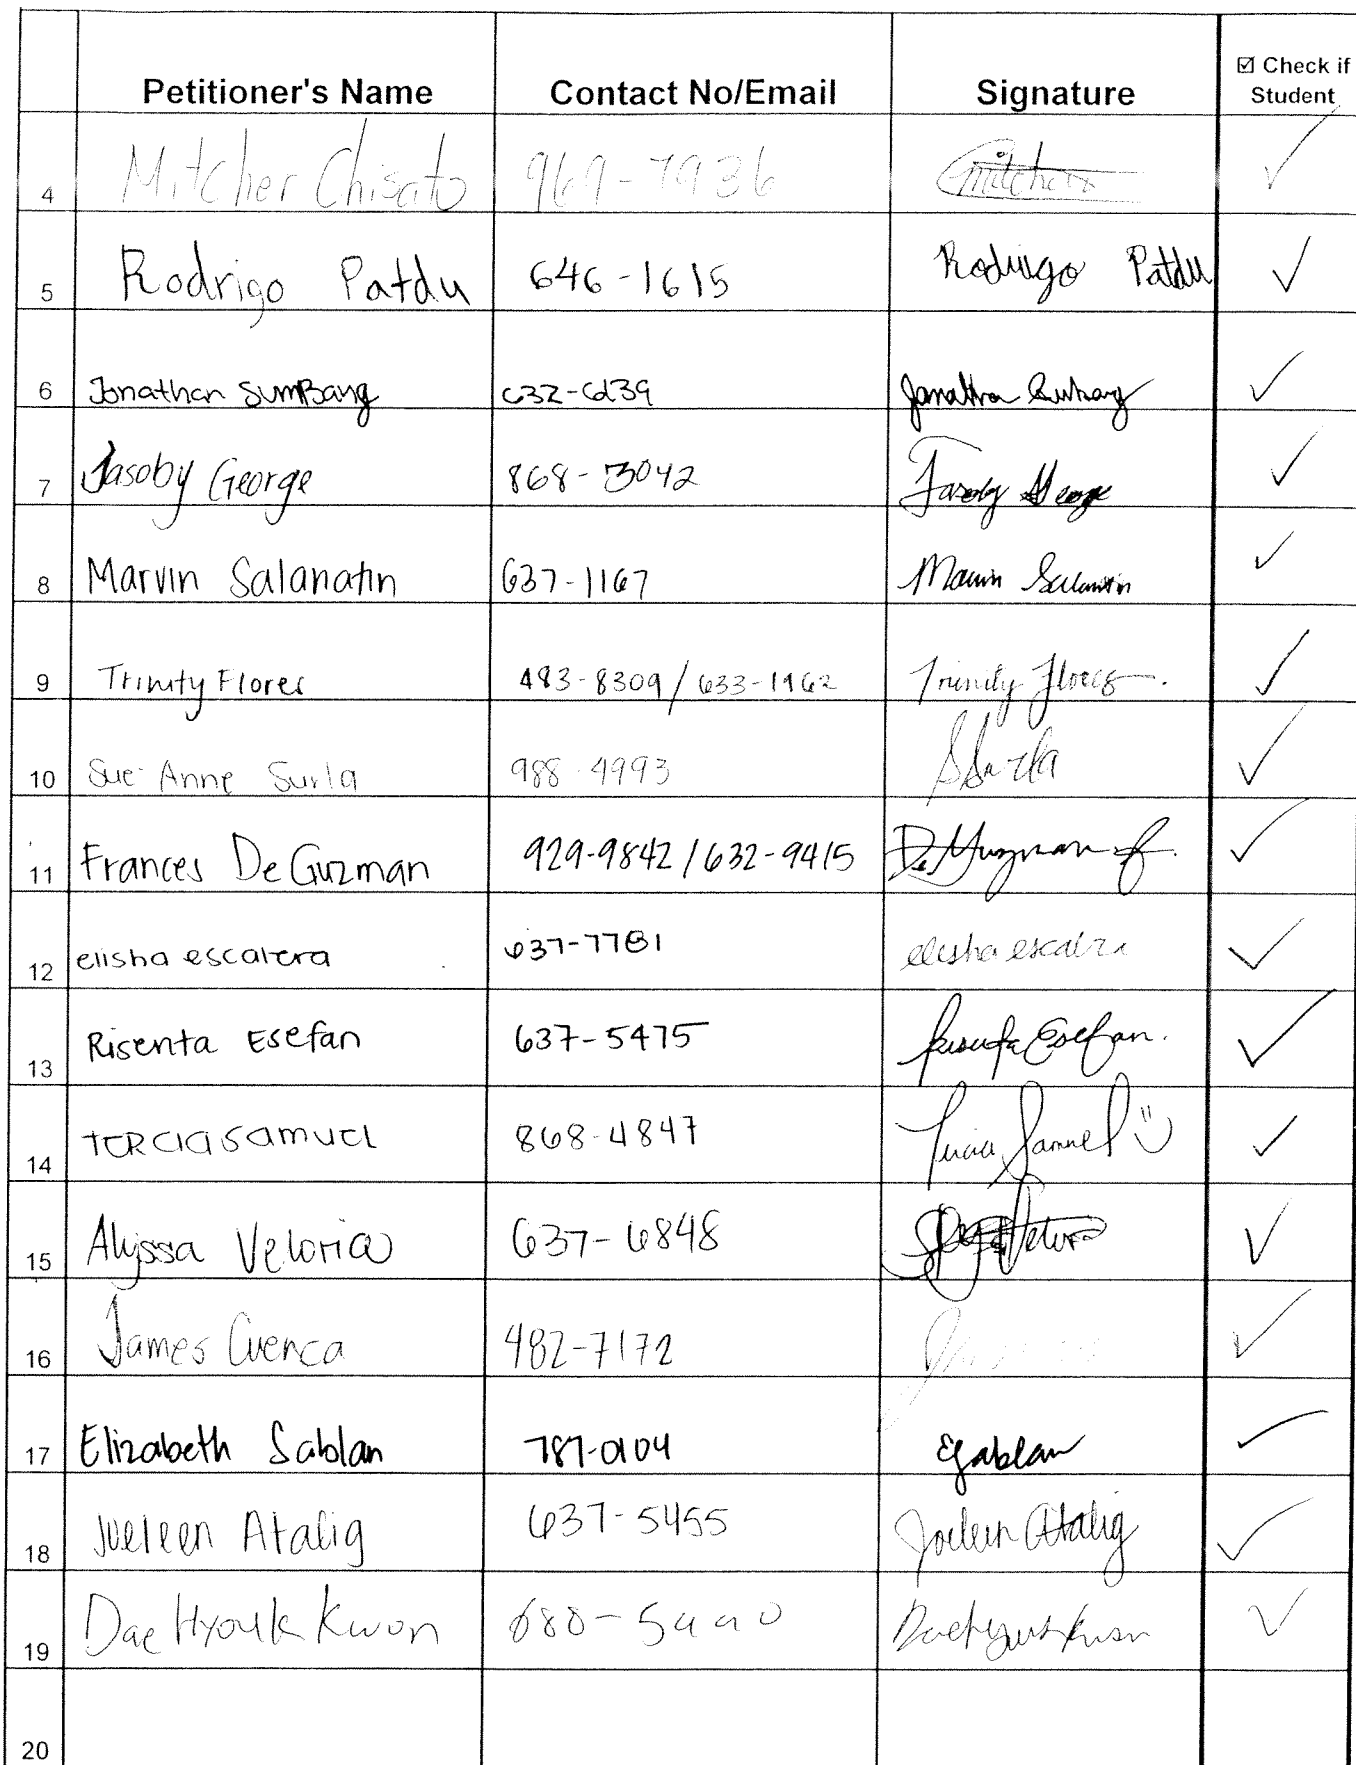 Petitioner's Name Contact No/Email Signature ☑ Check if Student
4 Mitcher Chisato 969-7936 Mitcher ✓
5 Rodrigo Patdu 646-1615 Rodrigo Patdu ✓
6 Jonathan SumBang ✓
7 Jasoby George 868-3042 Jasoby George ✓
8 Marvin Salanatin 637-1167 Marvin Salanatin ✓
9 Trinity Flores 483-8309 / 633-1962 Trinity Flores. ✓
10 Sue Anne Surla 988-4993 SSurla ✓
11 Frances De Guzman 929-9842 / 632-9415 De Guzman f. ✓
12 elisha escalera 637-7781 elisha escalera ✓
13 Risenta Esefan 637-5475 Risenta Esefan. ✓
14 TERCIA SAMUEL 868-4847 Samuel ✓
15 Alyssa Veloria 637-6848 ✓
16 James Cuenca 482-7172 ✓
17 Elizabeth Sablan 787-0104 ESablan ✓
18 Atalig 637-5455 Joeleen Atalig ✓
19 Dae Hyouk Kwon Daehyouk Kwon ✓
20